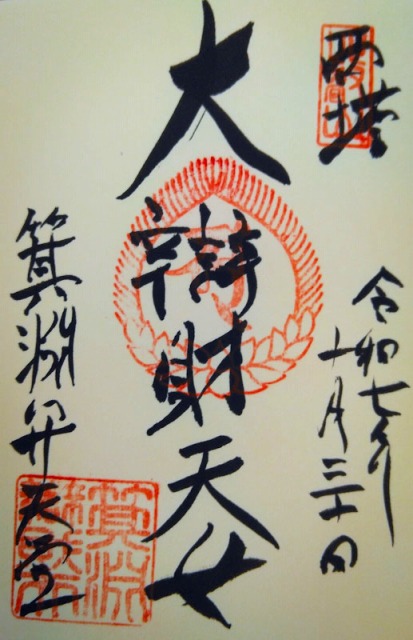 西塔
令和七年
十月三十日
大辯財天女
箕淵弁天堂